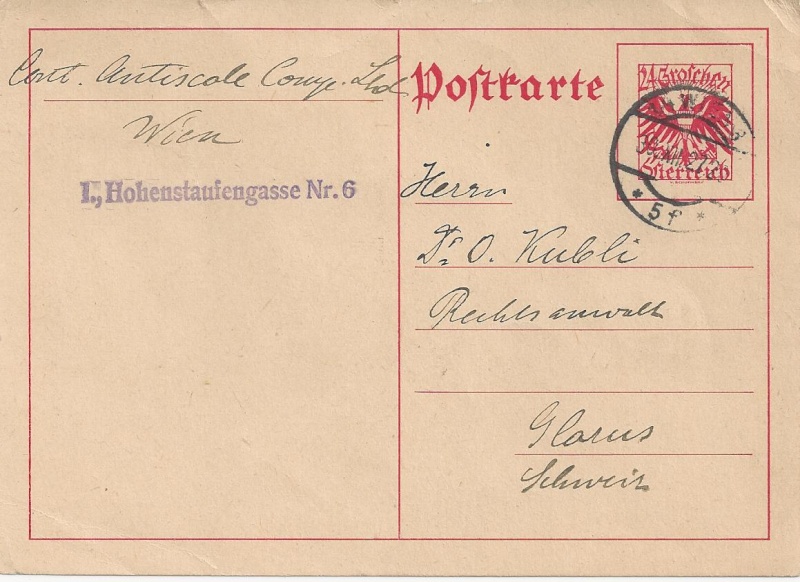 Cont. Antiscale Comp. Ltd
Wien
I., Hohenstaufengasse Nr. 6
Postkarte
24 Groschen
Österreich
* 5 f *
Herrn
Dr. O. Kubli
Rechtsanwalt
Glarus
Schweiz